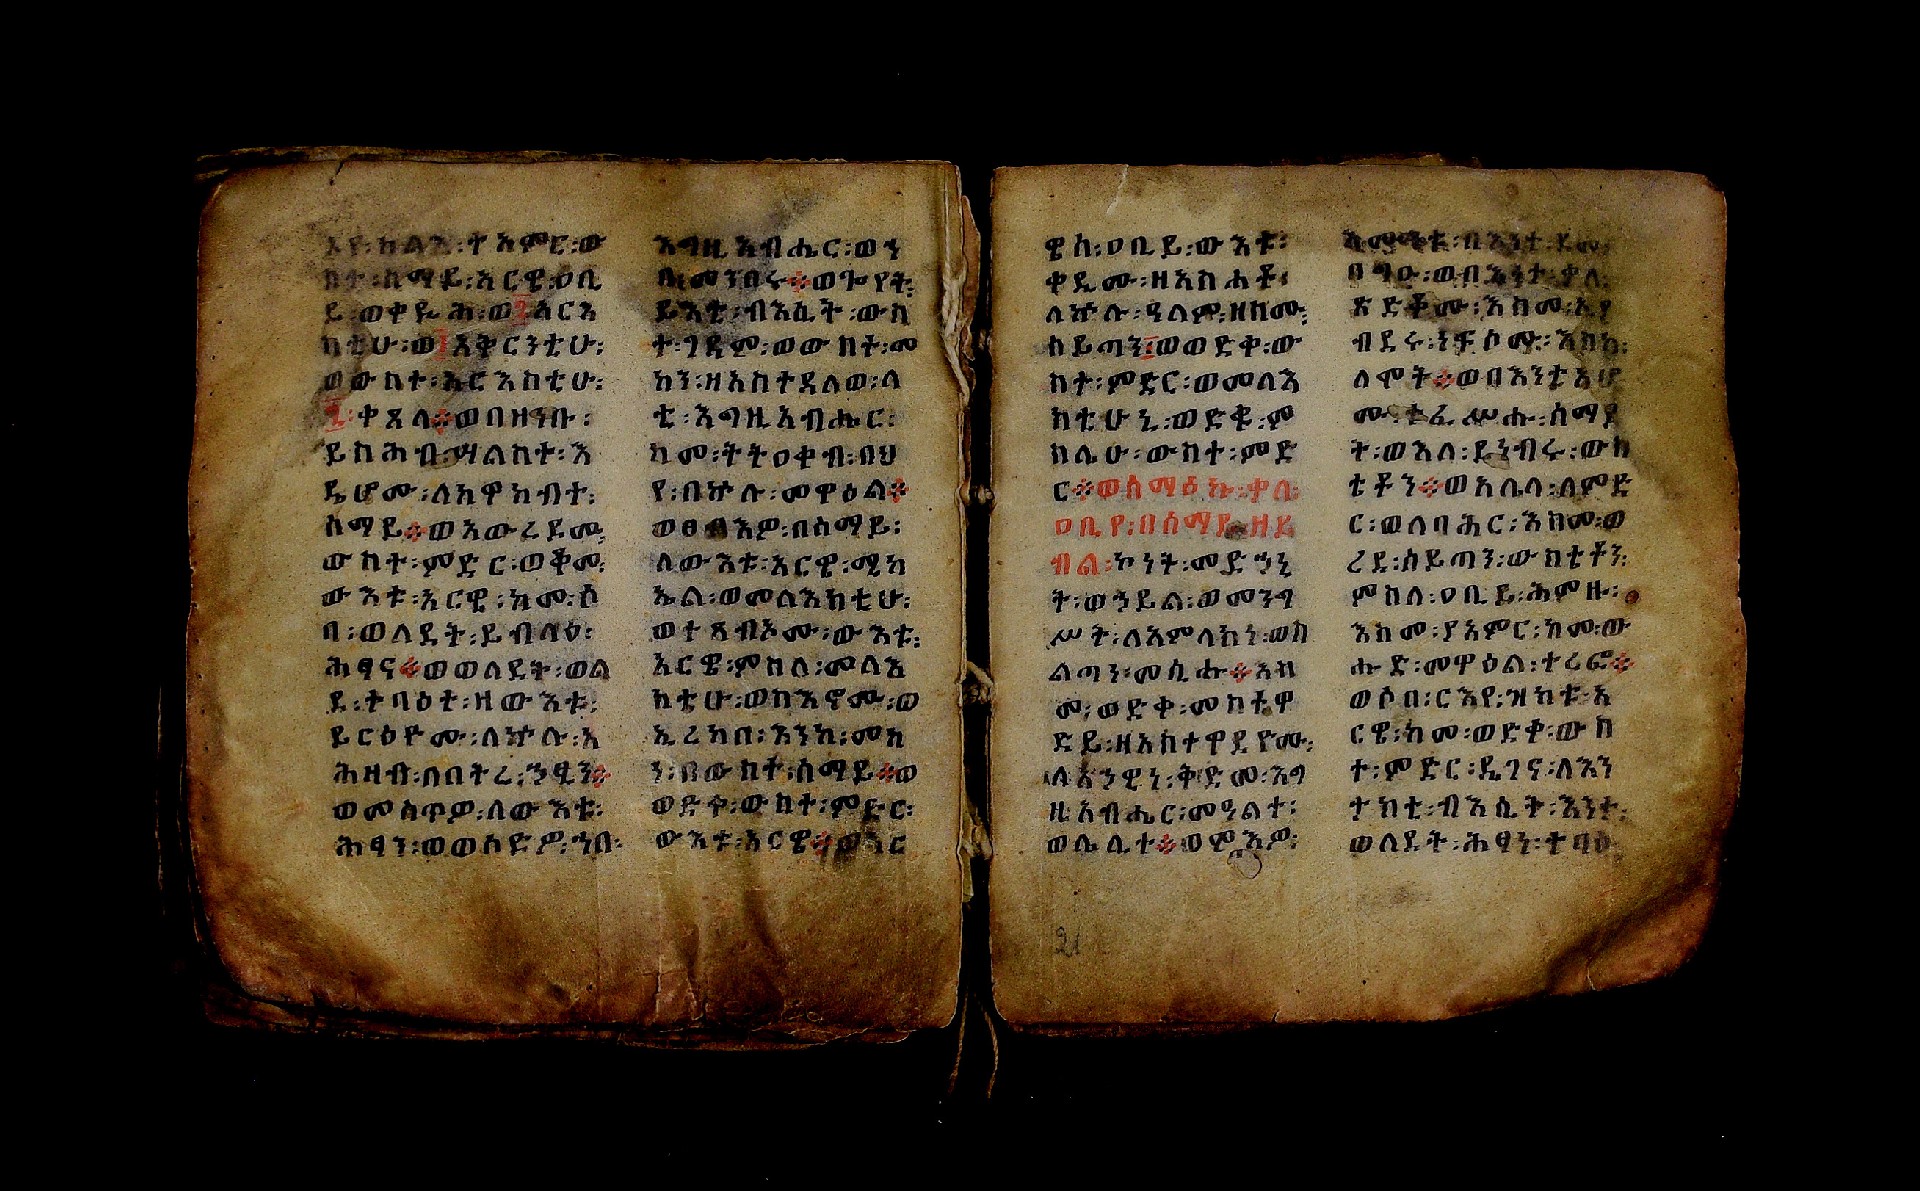 እየ፡ካልእ፡ተአምር፡ው
ስተ፡ሰማይ፡አርዌ፡ዐቢ
ይ፡ወቀይሕ፡ወ፯አርእ
ስቲሁ፡ወ፲አቅርንቲሁ፡
ወውስተ፡አርእስቲሁ፡
፯፡ቀጸላ፨ወበዘነቡ፡
ይስሕብ፡ሣልስተ፡እ
ዴሆሙ፡ለከዋክብተ፡
ሰማይ፨ወአውረደሙ፡
ውስተ፡ምድር፡ወቆመ፡
ውእቱ፡አርዌ፡ከመ፡ሶ
በ፡ወለደት፡ይብላዕ፡
ሕፃና፨ወወለደት፡ወል
ደ፡ተባዕተ፡ዘውእቱ፡
ይርዕዮሙ፡ለኵሉ፡አ
ሕዛብ፡በበትረ፡ኀፂን፨
ወመሰጥዎ፡ለውእቱ፡
ሕፃን፡ወወሰድዎ፡ኀበ፡
እግዚአብሔር፡ወኀ
በ፡መንበሩ፨ወጐየት፡
ይእቲ፡ብእሲት፡ውስ
ተ፡ገዳም፡ወውስተ፡መ
ካን፡ዘአስተዳለወ፡ላ
ቲ፡እግዚአብሔር፡
ከመ፡ትትዐቀብ፡በህ
የ፡በኵሉ፡መዋዕል፨
ወፀብእዎ፡በሰማይ፡
ለውእቱ፡አርዌ፡ሚካ
ኤል፡ወመላእክቲሁ፡
ወተጻብኦሙ፡ውእቱ፡
አርዌ፡ምስለ፡መላእ
ክቲሁ፡ወስእኖሙ፡ወ
ኢረከበ፡እንከ፡መካ
ነ፡በውስተ፡ሰማይ፨ወ
ወድቀ፡ውስተ፡ምድር፡
ውእቱ፡አርዌ፨ወአር
ዌሰ፡ዐቢይ፡ውእቱ፡
ቀዲሙ፡ዘአስሐቶ፡
ለኵሉ፡ዓለም፡ዘስሙ፡
ሰይጣን፡ወወድቀ፡ው
ስተ፡ምድር፡ወመላእ
ክቲሁኒ፡ወድቁ፡ም
ስሌሁ፡ውስተ፡ምድ
ር፨ወሰማዕኩ፡ቃለ፡
ዐቢየ፡በሰማይ፡ዘይ
ብል፡ኮነት፡መድኃኒ
ት፡ወኃይል፡ወመንግ
ሥት፡ለአምላክነ፡ወስ
ልጣን፡መሲሑ፨እስ
መ፡ወድቀ፡መስተዋ
ድይ፡ዘአስተዋደዮሙ፡
ለአኀዊነ፡ቅድመ፡እግ
ዚአብሔር፡መዓልተ፡
ወሌሊተ፨ወሞእዎ፡
እሙንቱ፡በእንተ፡ደሙ፡
በግዑ፡ወበእንተ፡ቃለ፡
ጽድቆሙ፡እስመ፡ኢያ
ብደሩ፡ነፍሶሙ፡እስከ፡
ለሞት፨ወበእንቲአሆ
ሙ፡ተፈሥሑ፡ሰማያ
ት፡ወእለ፡ይነብሩ፡ውስ
ቴቶን፨ወአሌላ፡ለምድ
ር፡ወለባሕር፡እስመ፡ወ
ረደ፡ሰይጣን፡ውስቴቶን፡
ምስለ፡ዐቢይ፡ሕምዙ፡
እስመ፡ያአምር፡ከመ፡ው
ሑድ፡መዋዕል፡ተረፎ፨
ወሶበ፡ርእየ፡ዝክቱ፡አ
ርዌ፡ከመ፡ወድቀ፡ውስ
ተ፡ምድር፡ዴገና፡ለእን
ታክቲ፡ብእሲት፡እንተ፡
ወለደት፡ሕፃነ፡ተባዕ
21